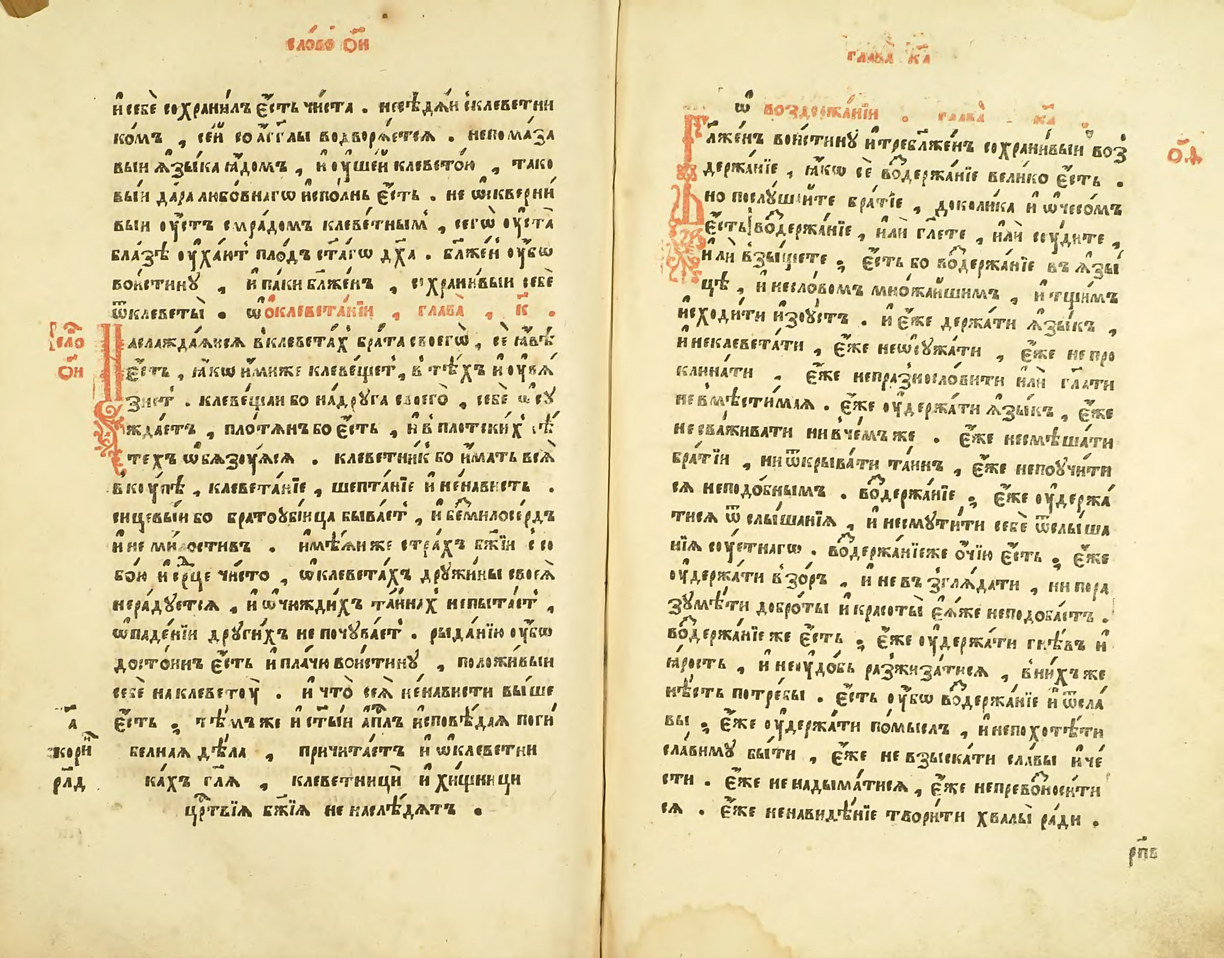 сло́во ѻ҃и
и҆ себѐ сохрани́лъ є҆́сть чи́ста . несѣдѧ́й с клеветни
ко́мъ , се́й со а҆́гг҃лы водворѧ́етсѧ . непома́за
вый ѧ҆зы́ка ꙗ҆́домъ , и҆ ᲂу҆ше́й клевето́ю , тако
вы́й да́ра любо́внагѡ и҆спо́лнь є҆́сть . не ѡ҆скверни́
вый ᲂу҆́стъ смра́домъ клеве́тнымъ , сегѡ̀ ᲂу҆ста̀
бла́зѣ ᲂу҆ха́ютъ пло́дъ ст҃а́гѡ дх҃а . бл҃же́н ᲂу҆́бѡ
вои́стину , и҆ па́ки бл҃же́нъ , сохрани́выи себѐ
ѿ клеветы̀ . ѡ҆ оклевета́нїи , глава̀ , к҃ .
сло ѻ҃и
Наслажда́ѧйсѧ в клевета́х бра́та своегѡ̀ , се ꙗ҆́вѣ
є҆́сть , ꙗ҆́кѡ и҆́миже клеве́щет , в тѣ́хъ и҆ ᲂу҆вѧ
знет . клевещаи бо на дру́га своего̀ , себѐ ѡ҆су
жда́етъ , пло́тѧнъ бо є҆́сть , и҆ в плотски́х сѣ́
техъ ѡ҆бѧзᲂу́ѧсѧ . клеветни́к бо и҆́мать всѧ̀
вкᲂу́пѣ , клевета́нїе , шепта́нїе и҆ не́нависть .
сицевы́и бо братоᲂуби́йца быва́ет , и҆ безмилосе́рдъ
и҆ не ми́лостивъ . и҆мѣ́ѧи же стра́хъ бж҃їи с со
бо́ю и҆ се́рце чи́сто , ѡ҆ клевета́хъ дружи́ны своеѧ̀
не ра́дуетсѧ , и҆ ѡ҆ чюжди́хъ та́инах не пыта́ет ,
ѡ҆ паде́нїи други́хъ не почува́ет . рыда́нїю ᲂу҆́бѡ
досто́инъ є҆́сть и҆ пла́чю вои́стину , положи́выи
себѐ на клеветᲂу̀ . и҆ что̀ сеѧ̀ не́нависти вы́ше
є҆́сть ; тѣ́мъже и҆ ст҃ы́и а҆пл҃ъ и҆сповѣ́даѧ поги́
а҃ кори́н рл҃д
бе́лнаѧ дѣ́ла , причита́етъ и҆ ѡ҆ клеветни
ка́хъ гл҃ѧ , клеветницы̀ и҆ хи́щницы
црⷭ҇твїѧ бж҃їѧ не наслѣ́дѧтъ .
глава̀ к҃а
ѡ҆ воздержа́нїи . глава̀ . к҃а
Бл҃же́нъ вои́стину и҆ требл҃же́нъ сохрани́выи воз
держа́нїе , ꙗ҆́кѡ сѐ воⷥдержа́нїе вели́ко є҆́сть .
но послу́шаите бра́тїе , доколи́ка и҆ ѡ҆ чесо́мъ
є҆́сть воⷥдержа́нїе , и҆лѝ гл҃ете , и҆лѝ сᲂу́дите ,
и҆лѝ взы́щете ; є҆́сть бо воⷥдержа́нїе въ ѧ҆зы́
цѣ , и҆ не сло́вомъ мно́жайшимъ , и҆ тщи́мъ
и҆сходи́ти и҆зо ᲂу҆́стъ . и҆ є҆́же держа́ти ѧ҆зы́къ ,
и҆ неклевета́ти , є҆́же неѡ҆сужа́ти , є҆́же не про
клина́ти . є҆́же непразносло́вити и҆лѝ гл҃а́ти
невмѣсти́маѧ . є҆́же ᲂу҆держа́ти ѧ҆зы́къ , є҆́же
не сва́живати ни в че́мъ же . є҆́же несмѣша́ти
бра́тїи , ни ѿкрыва́ти та́инъ , є҆́же непоᲂучи́ти
сѧ неподо́бнымъ . воⷥдержа́нїе ; є҆́же ᲂу҆держа́
тисѧ ѿ слы́шанїѧ , и҆ несмути́ти себѐ ѿ слы́ша
нїѧ сᲂу́етнагѡ . воⷥдержа́нїе же ѻ҆чїю є҆́сть ; є҆́же
ᲂу҆держа́ти взо́ръ , и҆ не възглѧ́дати , ни пора
зумѣ́ти добро́ты и҆ красоты̀ є҆ѧ́же неподоба́етъ .
воⷥдержа́нїе же є҆́сть ; є҆́же ᲂу҆держа́ти гнѣ́въ и҆
ꙗ҆́рость , и҆ неᲂудо́бь разжиза́тисѧ , в ни́хъ же
нѣ́сть потре́бы . є҆́сть ᲂу҆́бѡ воⷥдержа́нїе и҆ ѿ сла́
вы ; є҆́же ᲂу҆держа́ти по́мыслъ , и҆ непохотѣ́ти
сла́виму бы́ти , є҆́же не взыска́ти сла́вы и҆ че́
сти . є҆́же не надыма́тисѧ , є҆́же непревоⷥноси́ти
сѧ . є҆́же ненави́дѣнїе твори́ти хвалы̀ ра́ди .
рп҃в